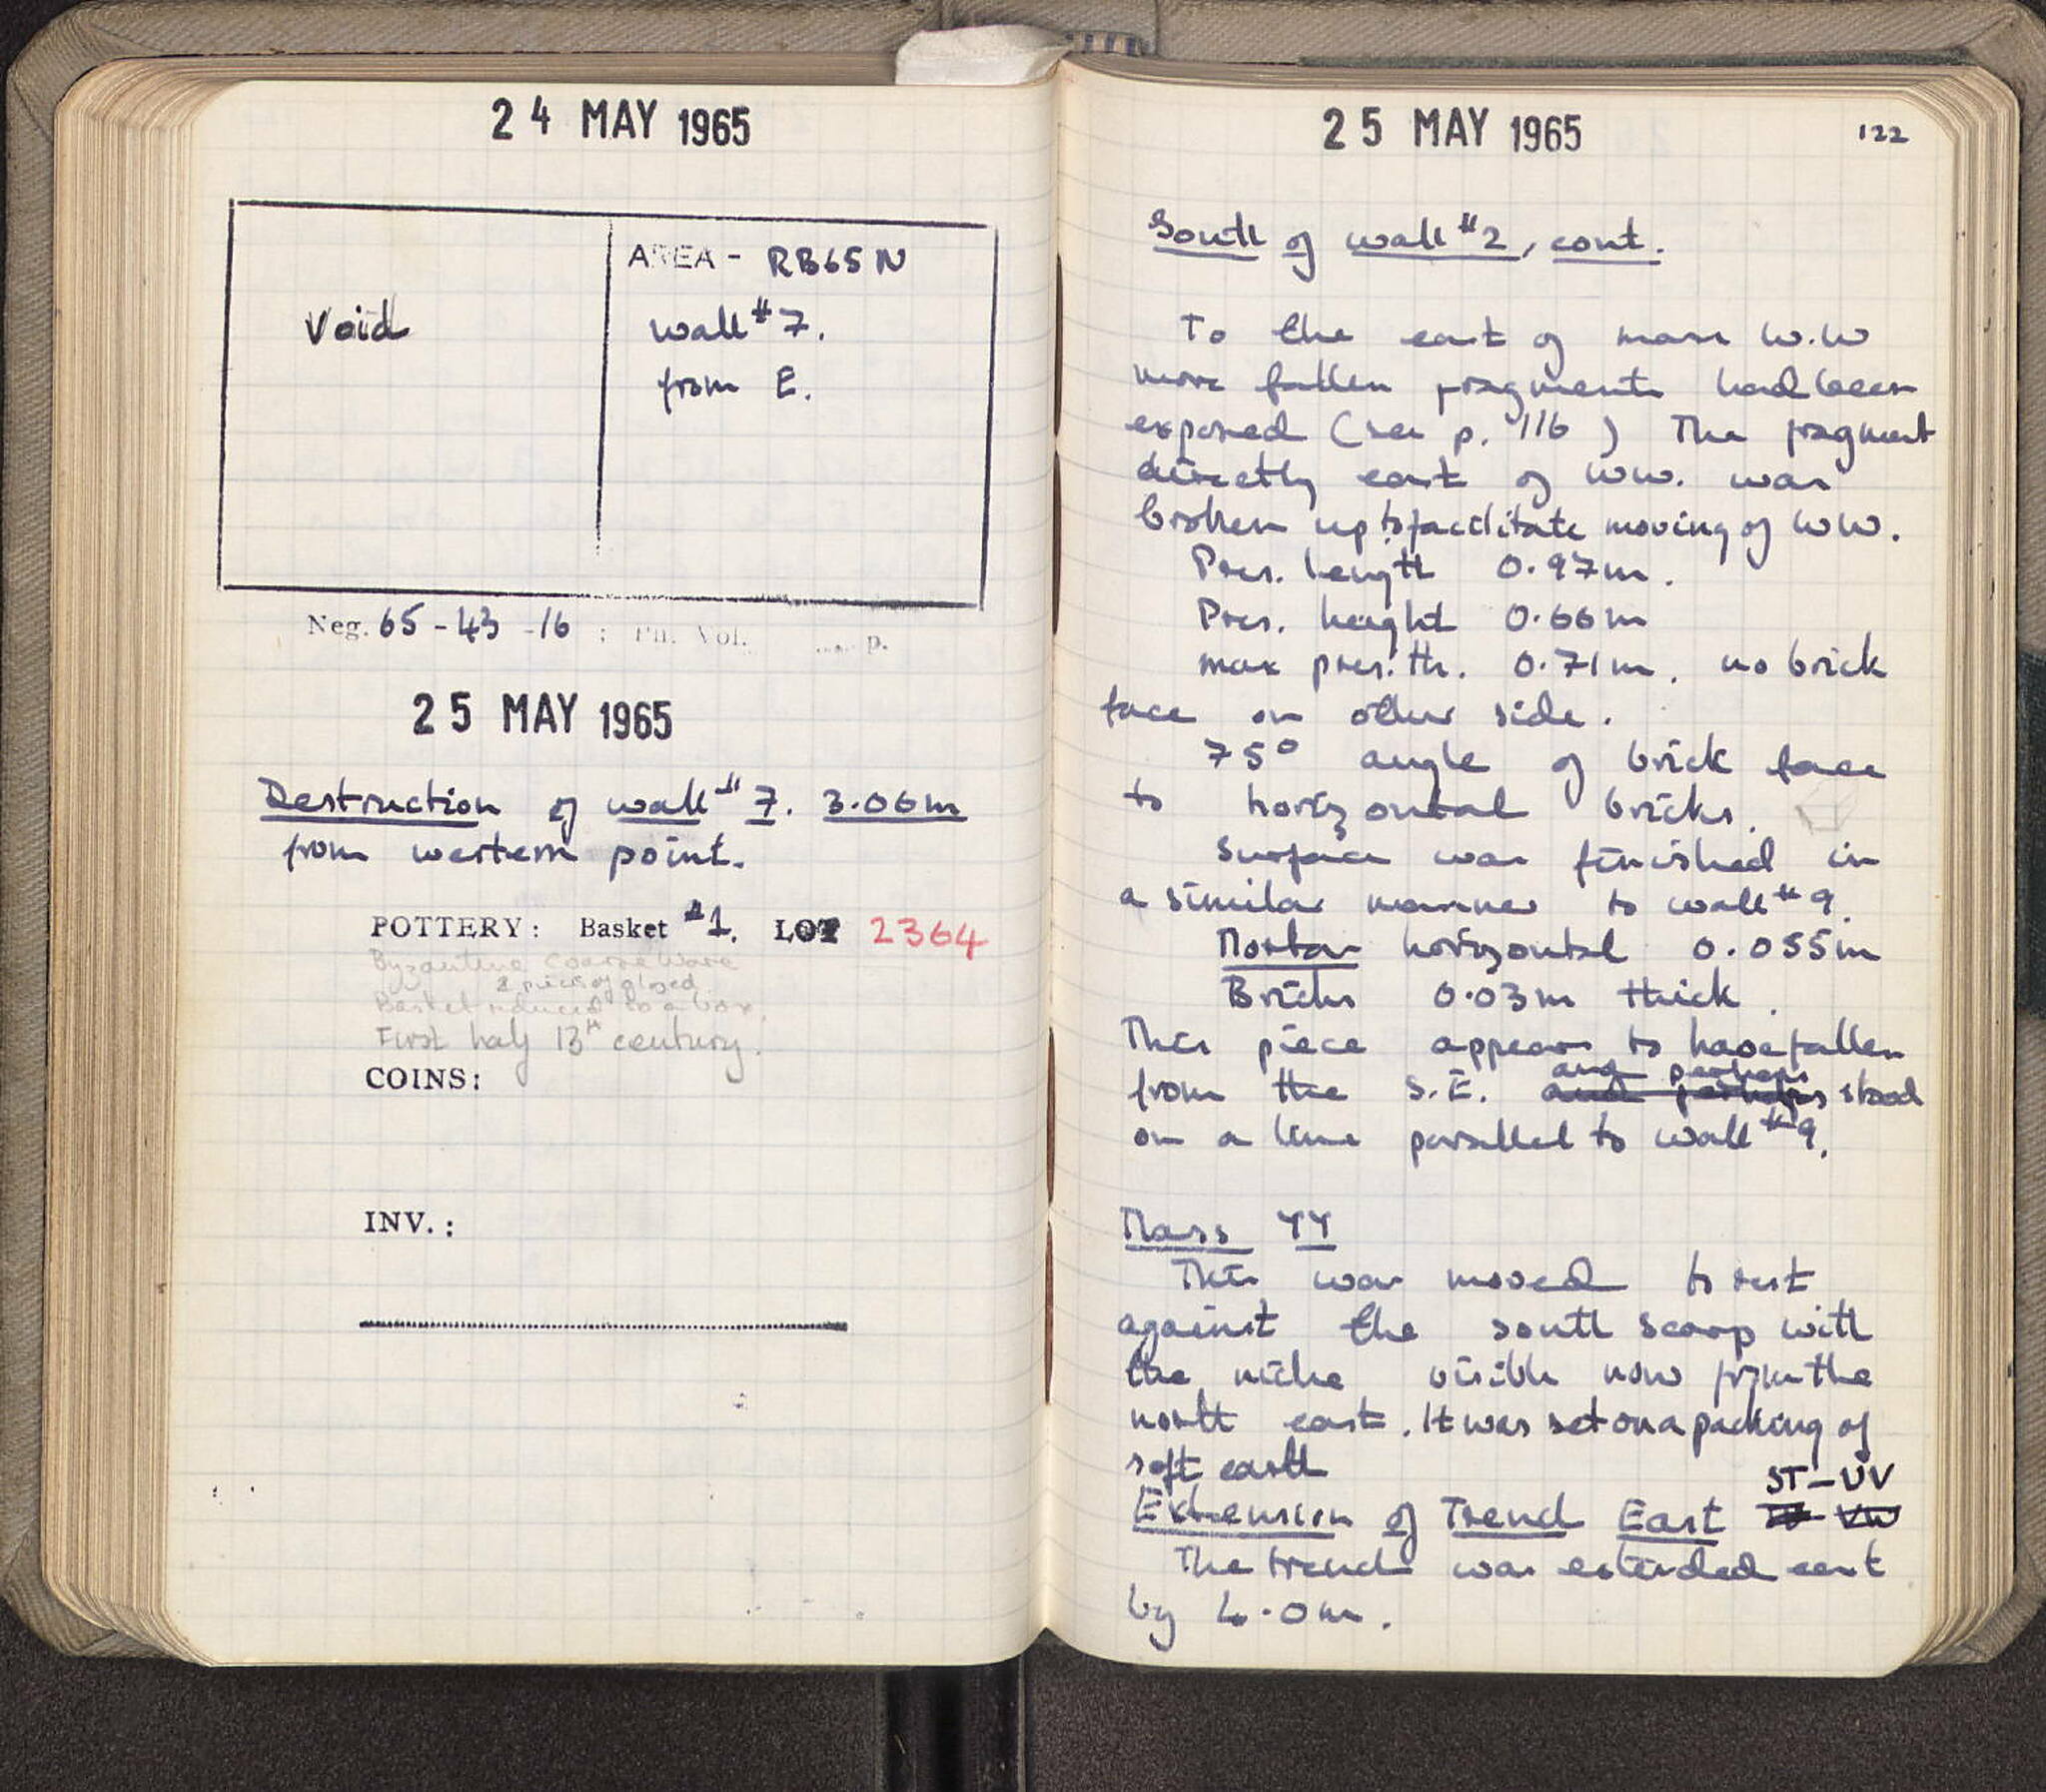 24 MAY 1965
Void
AREA - RB65N
wall #7.
from E.
Neg. 65-43-16 ; Ph. Vol. .... p.
25 MAY 1965
Destruction of wall #7. 3.06m
from western point.
POTTERY: Basket #1. LOT 2364
Byzantine Coarse Ware
2 pieces glazed
Basket reduced to a box.
First half 13th century.
COINS:
INV.:
25 MAY 1965
122
South of wall #2, cont.
To the east of mass W.W
more fallen fragments had been
exposed (see p. 116) The fragment
directly east of WW. was
broken up to facilitate moving of WW.
Pres. length 0.97m.
Pres. height 0.66m
max pres. th. 0.71m. no brick
face on other side.
75° angle of brick face
to horizontal bricks.
Surface was finished in
a similar manner to wall #9.
Mortar horizontal 0.055m
Bricks 0.03m thick.
This piece appears to have fallen
and perhaps
from the S.E. and perhaps stood
on a line parallel to wall #9.
Mass YY
This was moved to rest
against the south scarp with
the niche visible now from the
north east. It was set on a packing of
soft earth
ST-UV
Extension of Trench East
The trench was extended east
by 4.0m.